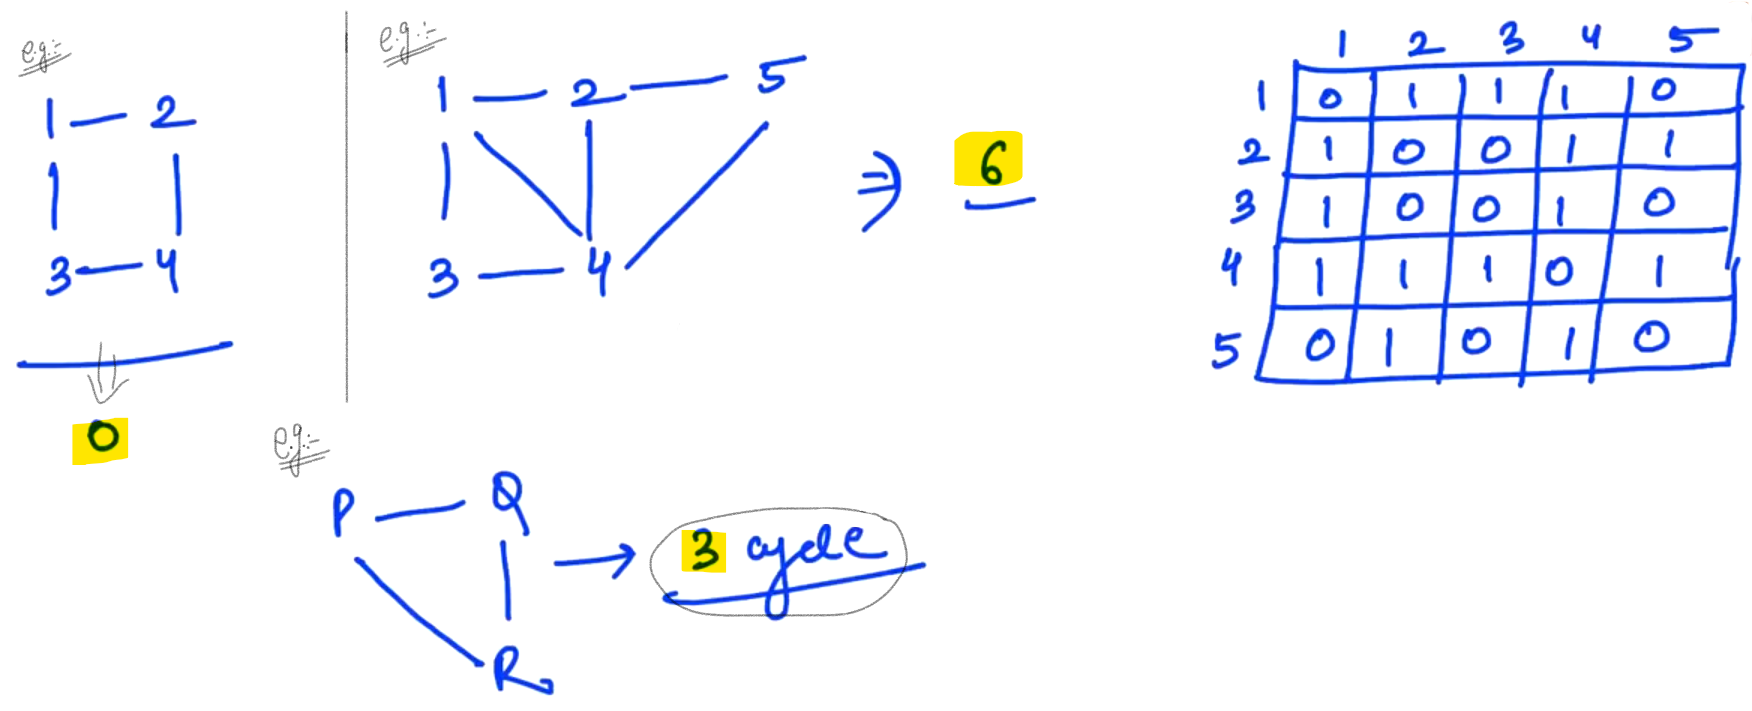 e.g:-
1 — 2
3 — 4
0
e.g:-
1 — 2 — 5
3 — 4
⇒ 6
1 2 3 4 5
1 0 1 1 1 0
2 1 0 0 1 1
3 1 0 0 1 0
4 1 1 1 0 1
5 0 1 0 1 0
e.g:-
P — Q
R
→ 3 cycle